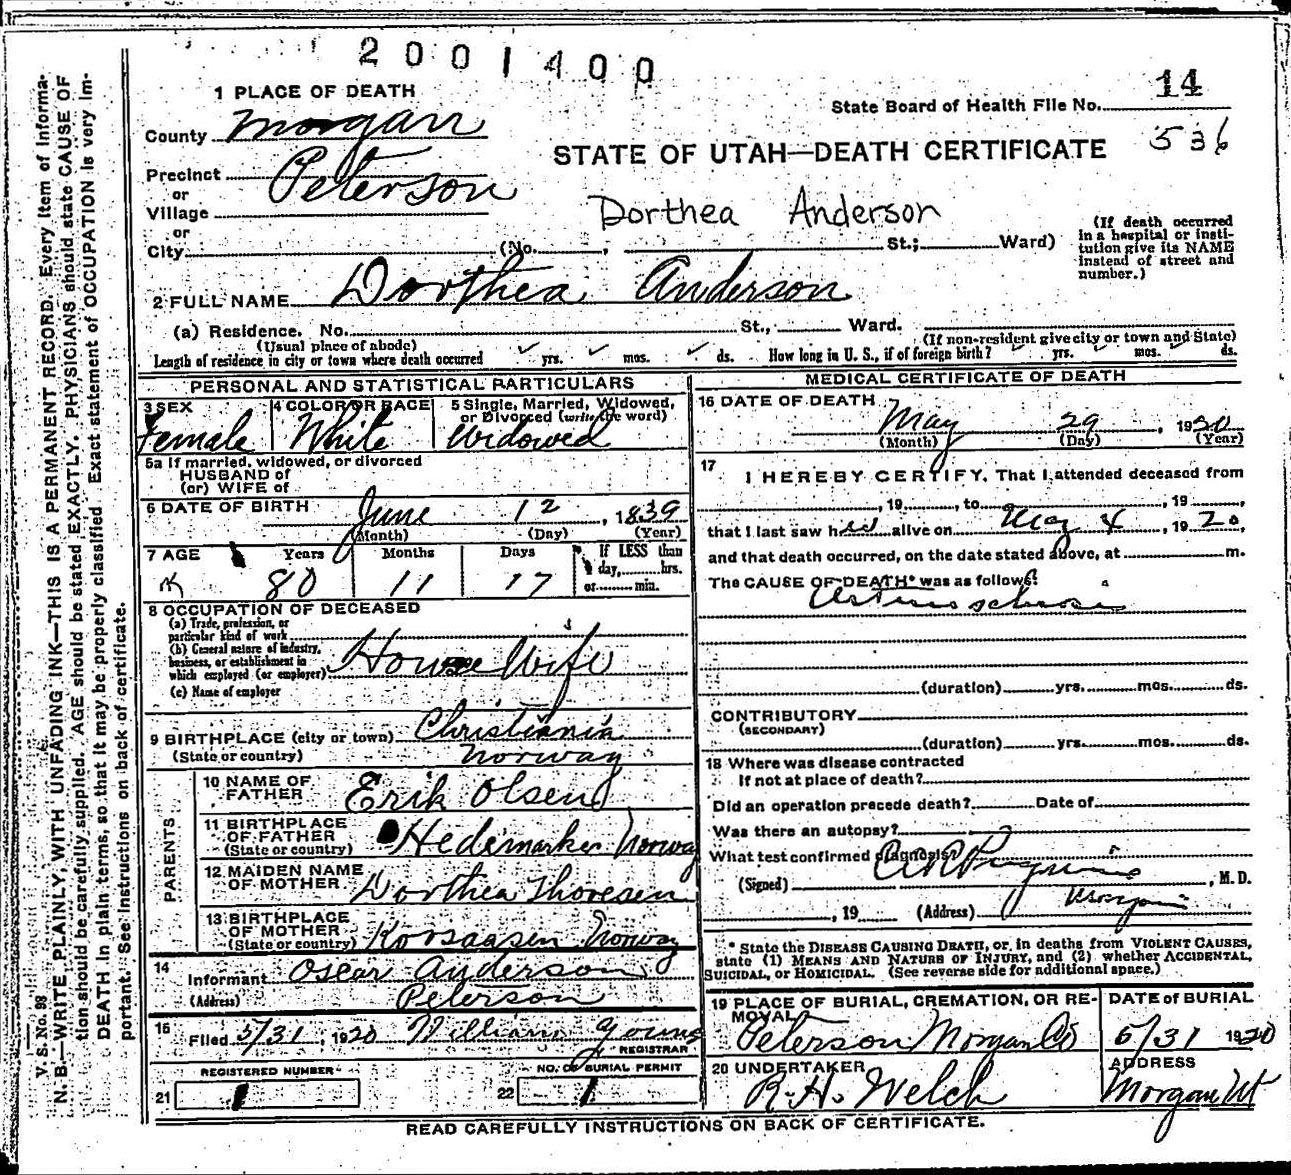 2001400
1 PLACE OF DEATH
State Board of Health File No. 14
County Morgan
536
STATE OF UTAH—DEATH CERTIFICATE
Precinct
or Peterson
Village
Dorthea Anderson
or
City (No. , St.; Ward)
(If death occurred in a hospital or institution give its NAME instead of street and number.)
2 FULL NAME Dorthea Anderson
(a) Residence. No. St., Ward.
(Usual place of abode) (If non-resident give city or town and State)
Length of residence in city or town where death occurred yrs. mos. ds. How long in U. S., if of foreign birth? yrs. mos. ds.
PERSONAL AND STATISTICAL PARTICULARS
3 SEX Female
4 COLOR OR RACE White
5 Single, Married, Widowed, or Divorced (write the word) Widowed
5a If married, widowed, or divorced
HUSBAND of
(or) WIFE of
6 DATE OF BIRTH June 12, 1839
(Month) (Day) (Year)
7 AGE Years Months Days If LESS than
80 11 17 day, hrs.
or min.
8 OCCUPATION OF DECEASED
(a) Trade, profession, or
particular kind of work
(b) General nature of industry,
business, or establishment in
which employed (or employer) House Wife
(c) Name of employer
9 BIRTHPLACE (city or town) Christiania
(State or country) Norway
PARENTS
10 NAME OF FATHER Erik Olsen
11 BIRTHPLACE OF FATHER (State or country) Hedemarken Norway
12 MAIDEN NAME OF MOTHER Dorthea Thoresen
13 BIRTHPLACE OF MOTHER (State or country) Korsaasen Norway
14 Informant Oscar Anderson
(Address) Peterson
15 Filed 5/31, 1920 William Young
REGISTRAR
REGISTERED NUMBER NO. OF BURIAL PERMIT
21 1 22 1
MEDICAL CERTIFICATE OF DEATH
16 DATE OF DEATH May 29, 1920
(Month) (Day) (Year)
17 I HEREBY CERTIFY, That I attended deceased from
, 19 , to , 19 ,
that I last saw her alive on May 4, 1920,
and that death occurred, on the date stated above, at m.
The CAUSE OF DEATH* was as follows:
(duration) yrs. mos. ds.
CONTRIBUTORY
(SECONDARY)
(duration) yrs. mos. ds.
18 Where was disease contracted
If not at place of death?
Did an operation precede death? Date of
Was there an autopsy?
What test confirmed diagnosis?
(Signed) , M.D.
, 19 (Address) Morgan
* State the DISEASE CAUSING DEATH, or, in deaths from VIOLENT CAUSES,
state (1) MEANS AND NATURE OF INJURY, and (2) whether ACCIDENTAL,
SUICIDAL, or HOMICIDAL. (See reverse side for additional space.)
19 PLACE OF BURIAL, CREMATION, OR REMOVAL DATE of BURIAL
Peterson Morgan Co 5/31 1920
20 UNDERTAKER ADDRESS
R. H. Welch Morgan Ut
READ CAREFULLY INSTRUCTIONS ON BACK OF CERTIFICATE.
V. S. No. 98
N. B.—WRITE PLAINLY, WITH UNFADING INK—THIS IS A PERMANENT RECORD. Every item of information should be carefully supplied. AGE should be stated EXACTLY. PHYSICIANS should state CAUSE OF DEATH in plain terms, so that it may be properly classified. Exact statement of OCCUPATION is very important. See instructions on back of certificate.